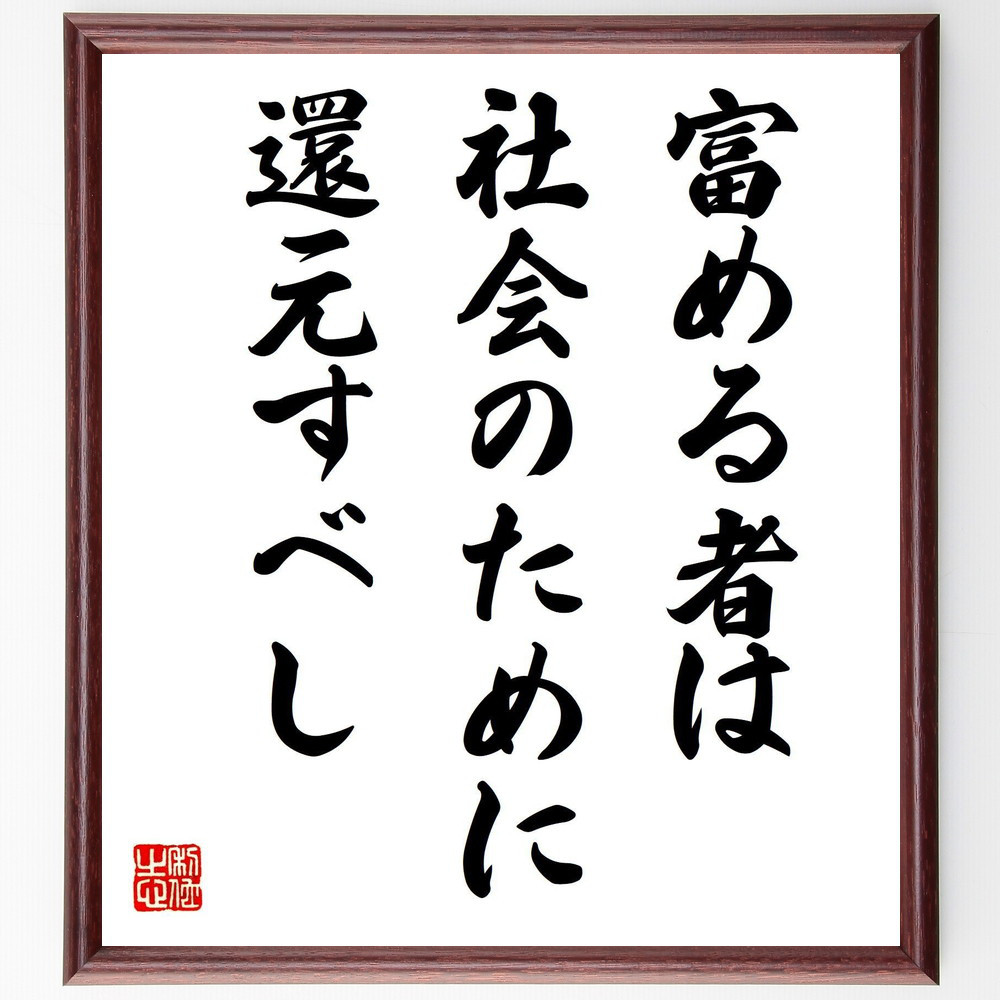 富める者は
社会のために
還元すべし